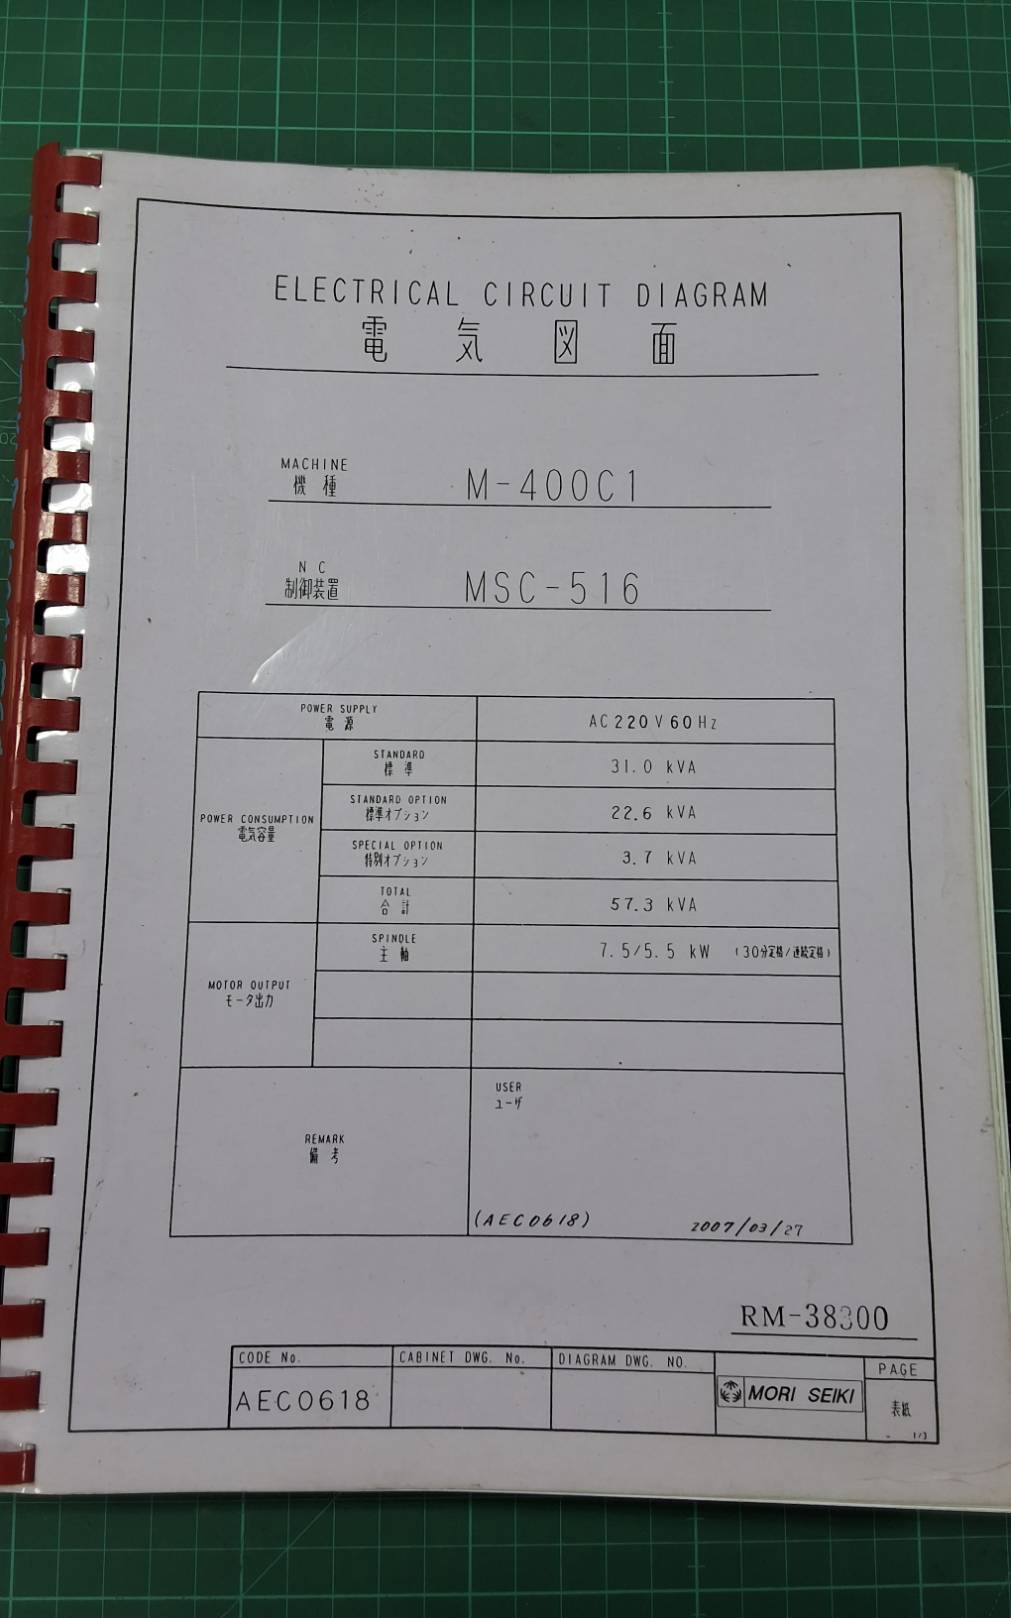 ELECTRICAL CIRCUIT DIAGRAM
電気図面
MACHINE
機種
M-400C1
NC
制御装置
MSC-516
POWER SUPPLY
電源
AC 220V 60Hz
POWER CONSUMPTION
電気容量
STANDARD
標準
31.0 kVA
STANDARD OPTION
標準オプション
22.6 kVA
SPECIAL OPTION
特別オプション
3.7 kVA
TOTAL
合計
57.3 kVA
MOTOR OUTPUT
モータ出力
SPINDLE
主軸
7.5/5.5 kW (30分定格/連続定格)
REMARK
備考
USER
ユーザ
(AEC0618) 2007/03/27
RM-38300
CODE No.
AEC0618
CABINET DWG. No.
DIAGRAM DWG. NO.
MORI SEIKI
PAGE
表紙
1/3